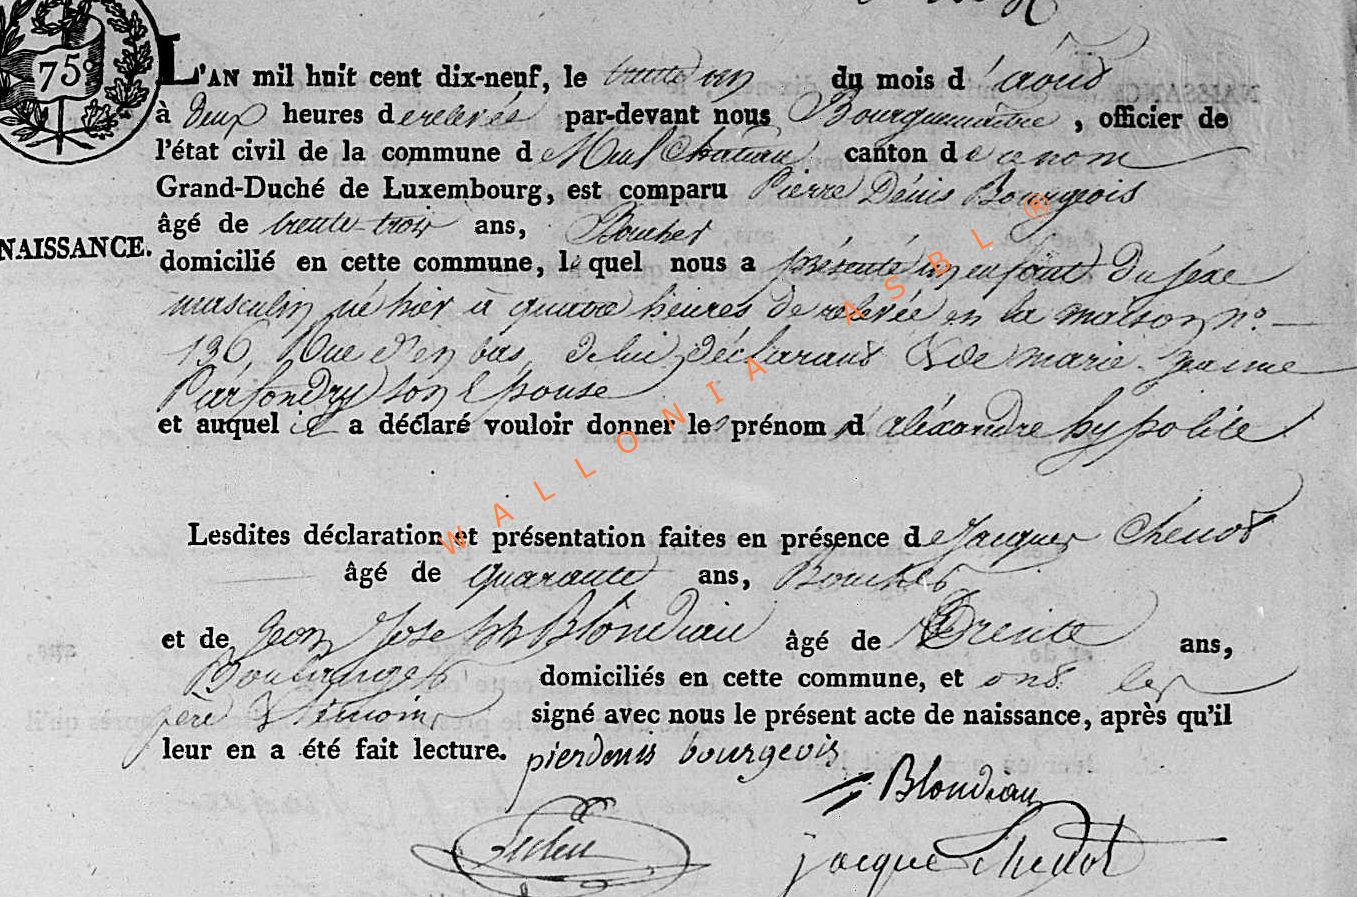 75c
L'AN mil huit cent dix-neuf, le trente un du mois d'aoust
à deux heures de relevés par-devant nous Bourguemaitre, officier de
l'état civil de la commune de Neufchateau canton de ce nom
Grand-Duché de Luxembourg, est comparu Pierre Dénis Bourgeois
âgé de trente-trois ans, Boucher
NAISSANCE.
domicilié en cette commune, lequel nous a présenté un enfant du sexe
masculin né hier à quatre heures de relevée en la maison n°
136 Rue d'en bas, de lui déclarant & de marie jeanne
Parfondry son Epouse
et auquel il a déclaré vouloir donner les prénom d'aléxandre hypolite
Lesdites déclaration et présentation faites en présence de Jacques Chenot
âgé de quarante ans, Boucher
et de Jean Joseph Blondiau âgé de Trente ans,
Boulanger domiciliés en cette commune, et ont les
père & témoins signé avec nous le présent acte de naissance, après qu'il
leur en a été fait lecture. pierdenis bourgeois
Blondiau
jacque Chenot
WALLONIA ASBL ®